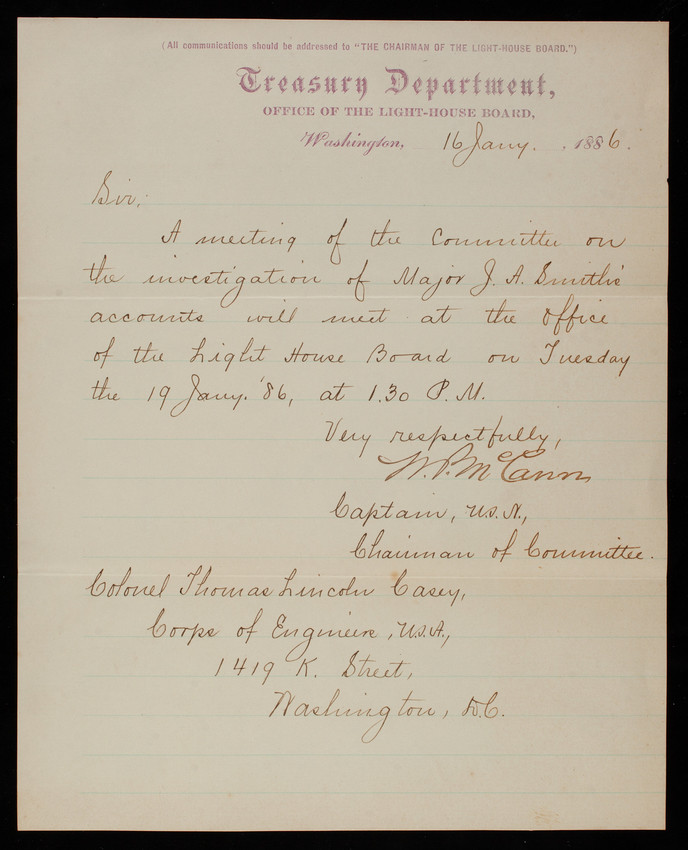 (All communications should be addressed to "THE CHAIRMAN OF THE LIGHT-HOUSE BOARD.")
Treasury Department,
OFFICE OF THE LIGHT-HOUSE BOARD,
Washington, 16 Jany. , 1886.
Sir:
A meeting of the Committee on
the investigation of Major J. A. Smith's
accounts will meet at the office
of the Light House Board on Tuesday
the 19 Jany. '86, at 1.30 P.M.
Very respectfully,
W. P. McCann
Captain, U.S.N.,
Chairman of Committee.
Colonel Thomas Lincoln Casey,
Corps of Engineers, U.S.A.,
1419 K. Street,
Washington, D.C.